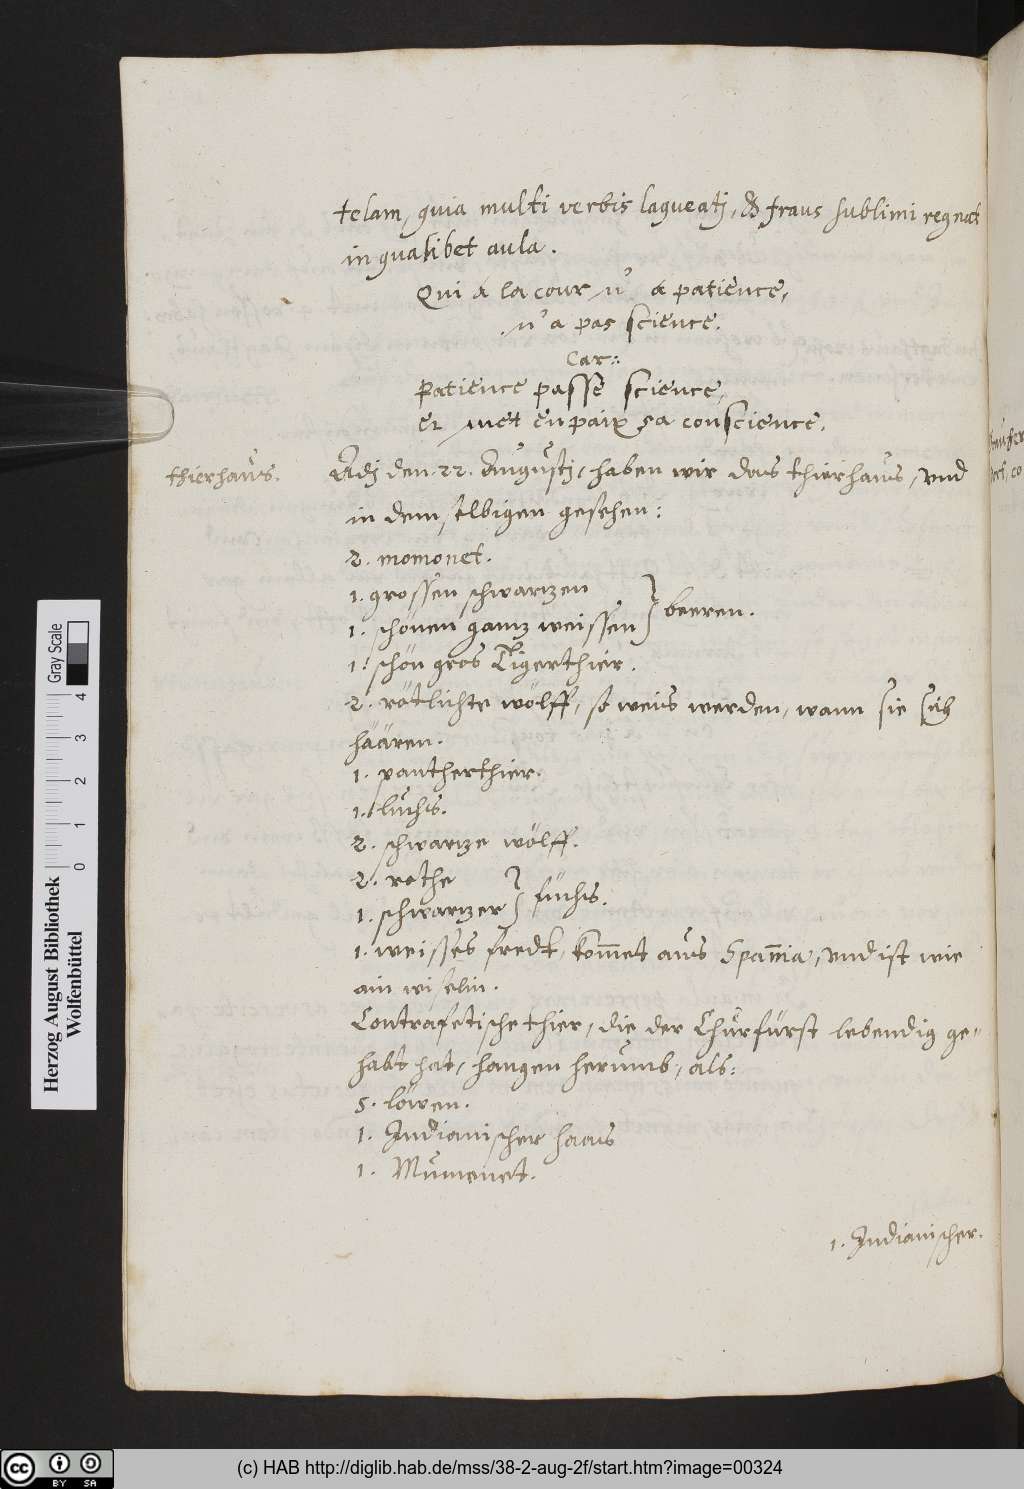 telam, quia multi verbis laqueatj, & fraus sublimi regnat
in qualibet aula.
Qui a la cour n' a patience,
n'a pas science.
Car:
Patience passe science,
et met en paix sa conscience.
thierhaus.
Adj den .22. Augustj, haben wir das thierhaus, vnd
in demselbigen gesehen:
2. momonet.
1. grossen schwartzen
1. schönen gantz weissen } beeren.
1. schön gros Tigerthier.
2. rötlichte wölff, so weis werden, wann sie sich
häären.
1. pantherthier.
1. luchs.
2. schwartze wölff.
2. rothe
1. schwartzer } füchs.
1. weisses fredt, kom̄et aus Span̄ia, vnd ist wie
ain wiselin.
Contrafetische thier, die der Churfürst lebendig ge-
habt hat, hangen herumb, als:
5. löwen.
1. Indianischer haas
1. Mumenet.
1. Indianischer.
Herzog August Bibliothek
Wolfenbüttel
Gray Scale
0 1 2 3 4
(c) HAB http://diglib.hab.de/mss/38-2-aug-2f/start.htm?image=00324
cc BY SA